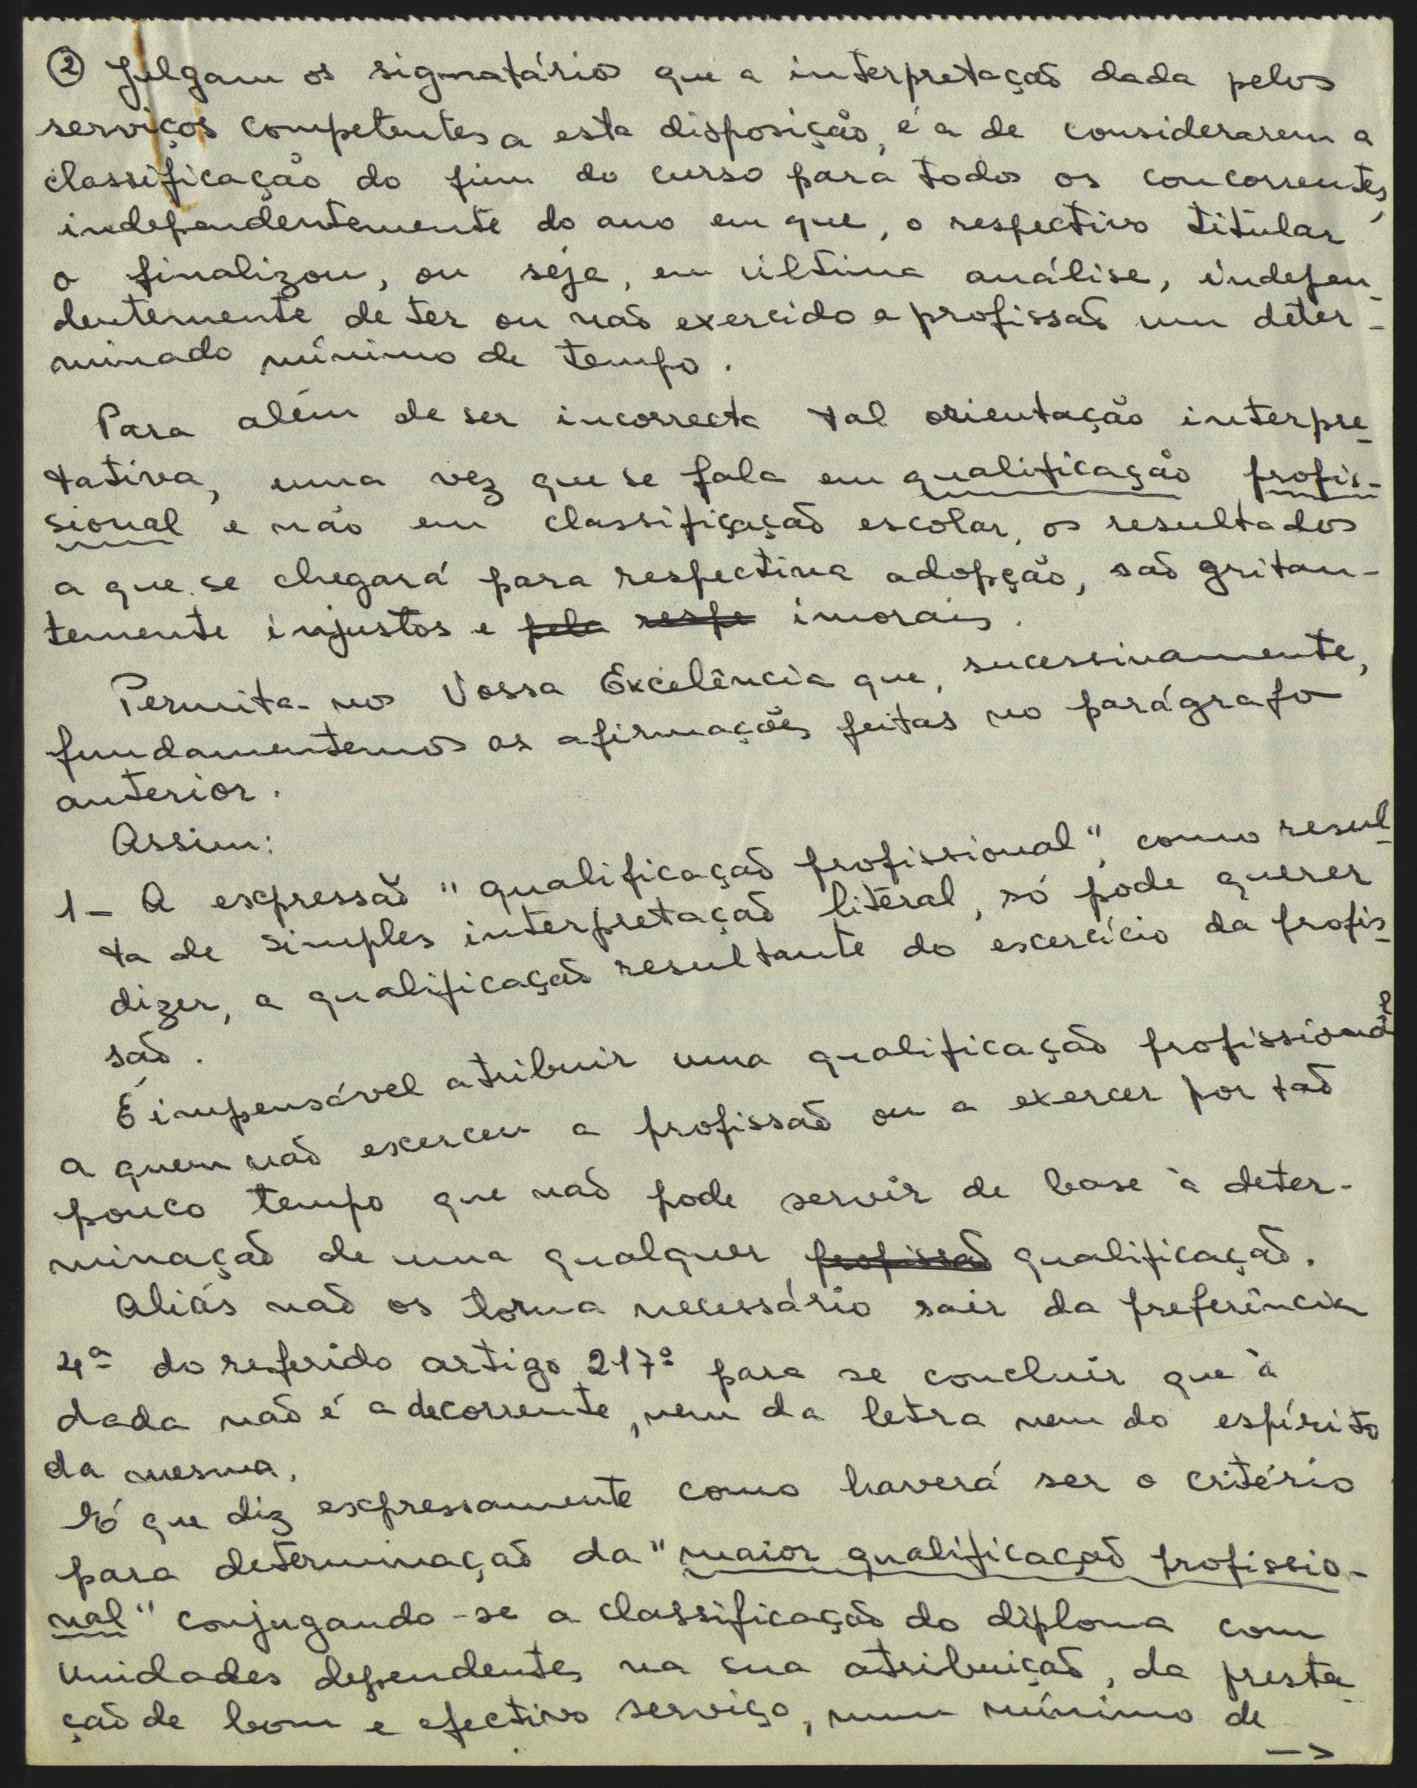 ② Julgam os signatários que a interpretação dada pelos
serviços competentes a esta disposição, é a de considerarem a
classificação do fim do curso para todos os concorrentes,
independentemente do ano em que, o respectivo titular
o finalizou, ou seja, em última análise, indepen-
dentemente de ter ou não exercido a profissão um deter-
minado mínimo de tempo.
Para além de ser incorrecta tal orientação interpre-
tativa, uma vez que se fala em qualificação profis-
sional e não em classificação escolar, os resultados
a que se chegará para respectiva adopção, são gritan-
temente injustos e pela respe imorais.
Permita-nos Vossa Excelência que, sucessivamente,
fundamentemos as afirmações feitas no parágrafo
anterior.
Assim:
1- A expressão "qualificação profissional", como resul-
ta de simples interpretação literal, só pode querer
dizer, a qualificação resultante do exercício da profis-
são.
É impensável atribuir uma qualificação profissional
a quem não exerceu a profissão ou a exercer por tão
pouco tempo que não pode servir de base à deter-
minação de uma qualquer profissão qualificação.
Aliás não os torna necessário sair da preferência
4ª do referido artigo 217º para se concluir que à
dada não é a decorrente, nem da letra nem do espírito
da mesma.
É que diz expressamente como haverá ser o critério
para determinação da "maior qualificação profissio-
nal" conjugando-se a classificação do diploma com
unidades dependentes na sua atribuição, da presta-
ção de bom e efectivo serviço, num mínimo de
->